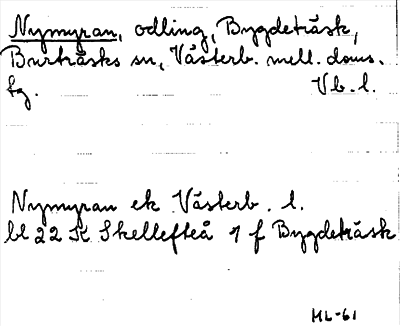 Nymyran, odling, Bygdeträsk,
Burträsks sn, Västerb. mell. doms.
fg. Vb. l.
Nymyran ek Västerb. l.
bl 22 K Skellefteå 7 f Bygdeträsk
ML-61